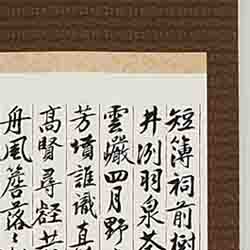 短簿祠前樹
井冽羽泉茶
雲巘四月野
芳墳誰識真
高賢尋
舟風簷落